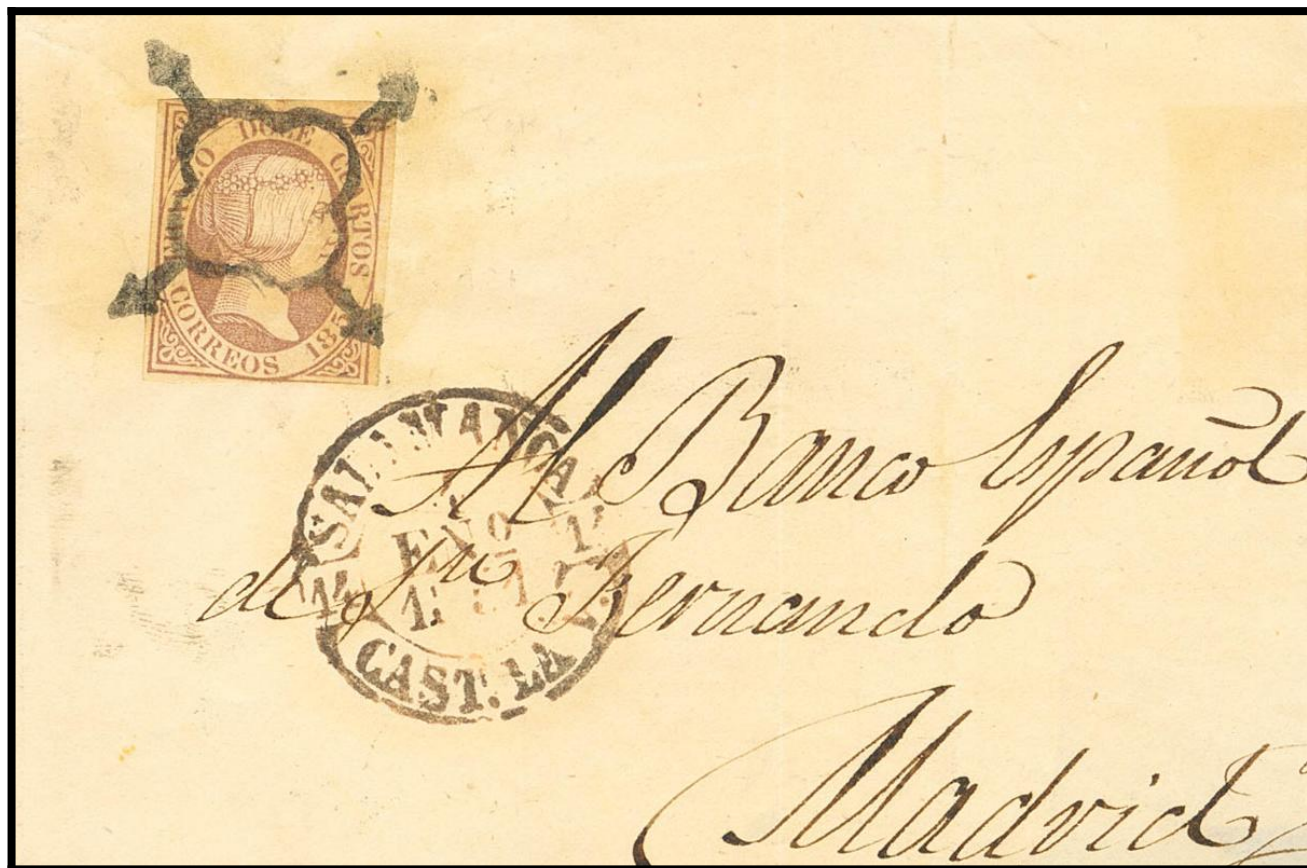 DOCE
CORREOS 185
SALAMANCA
ENO
CAST. LA V.
Al Banco Español
de Sn Fernando
Madrid